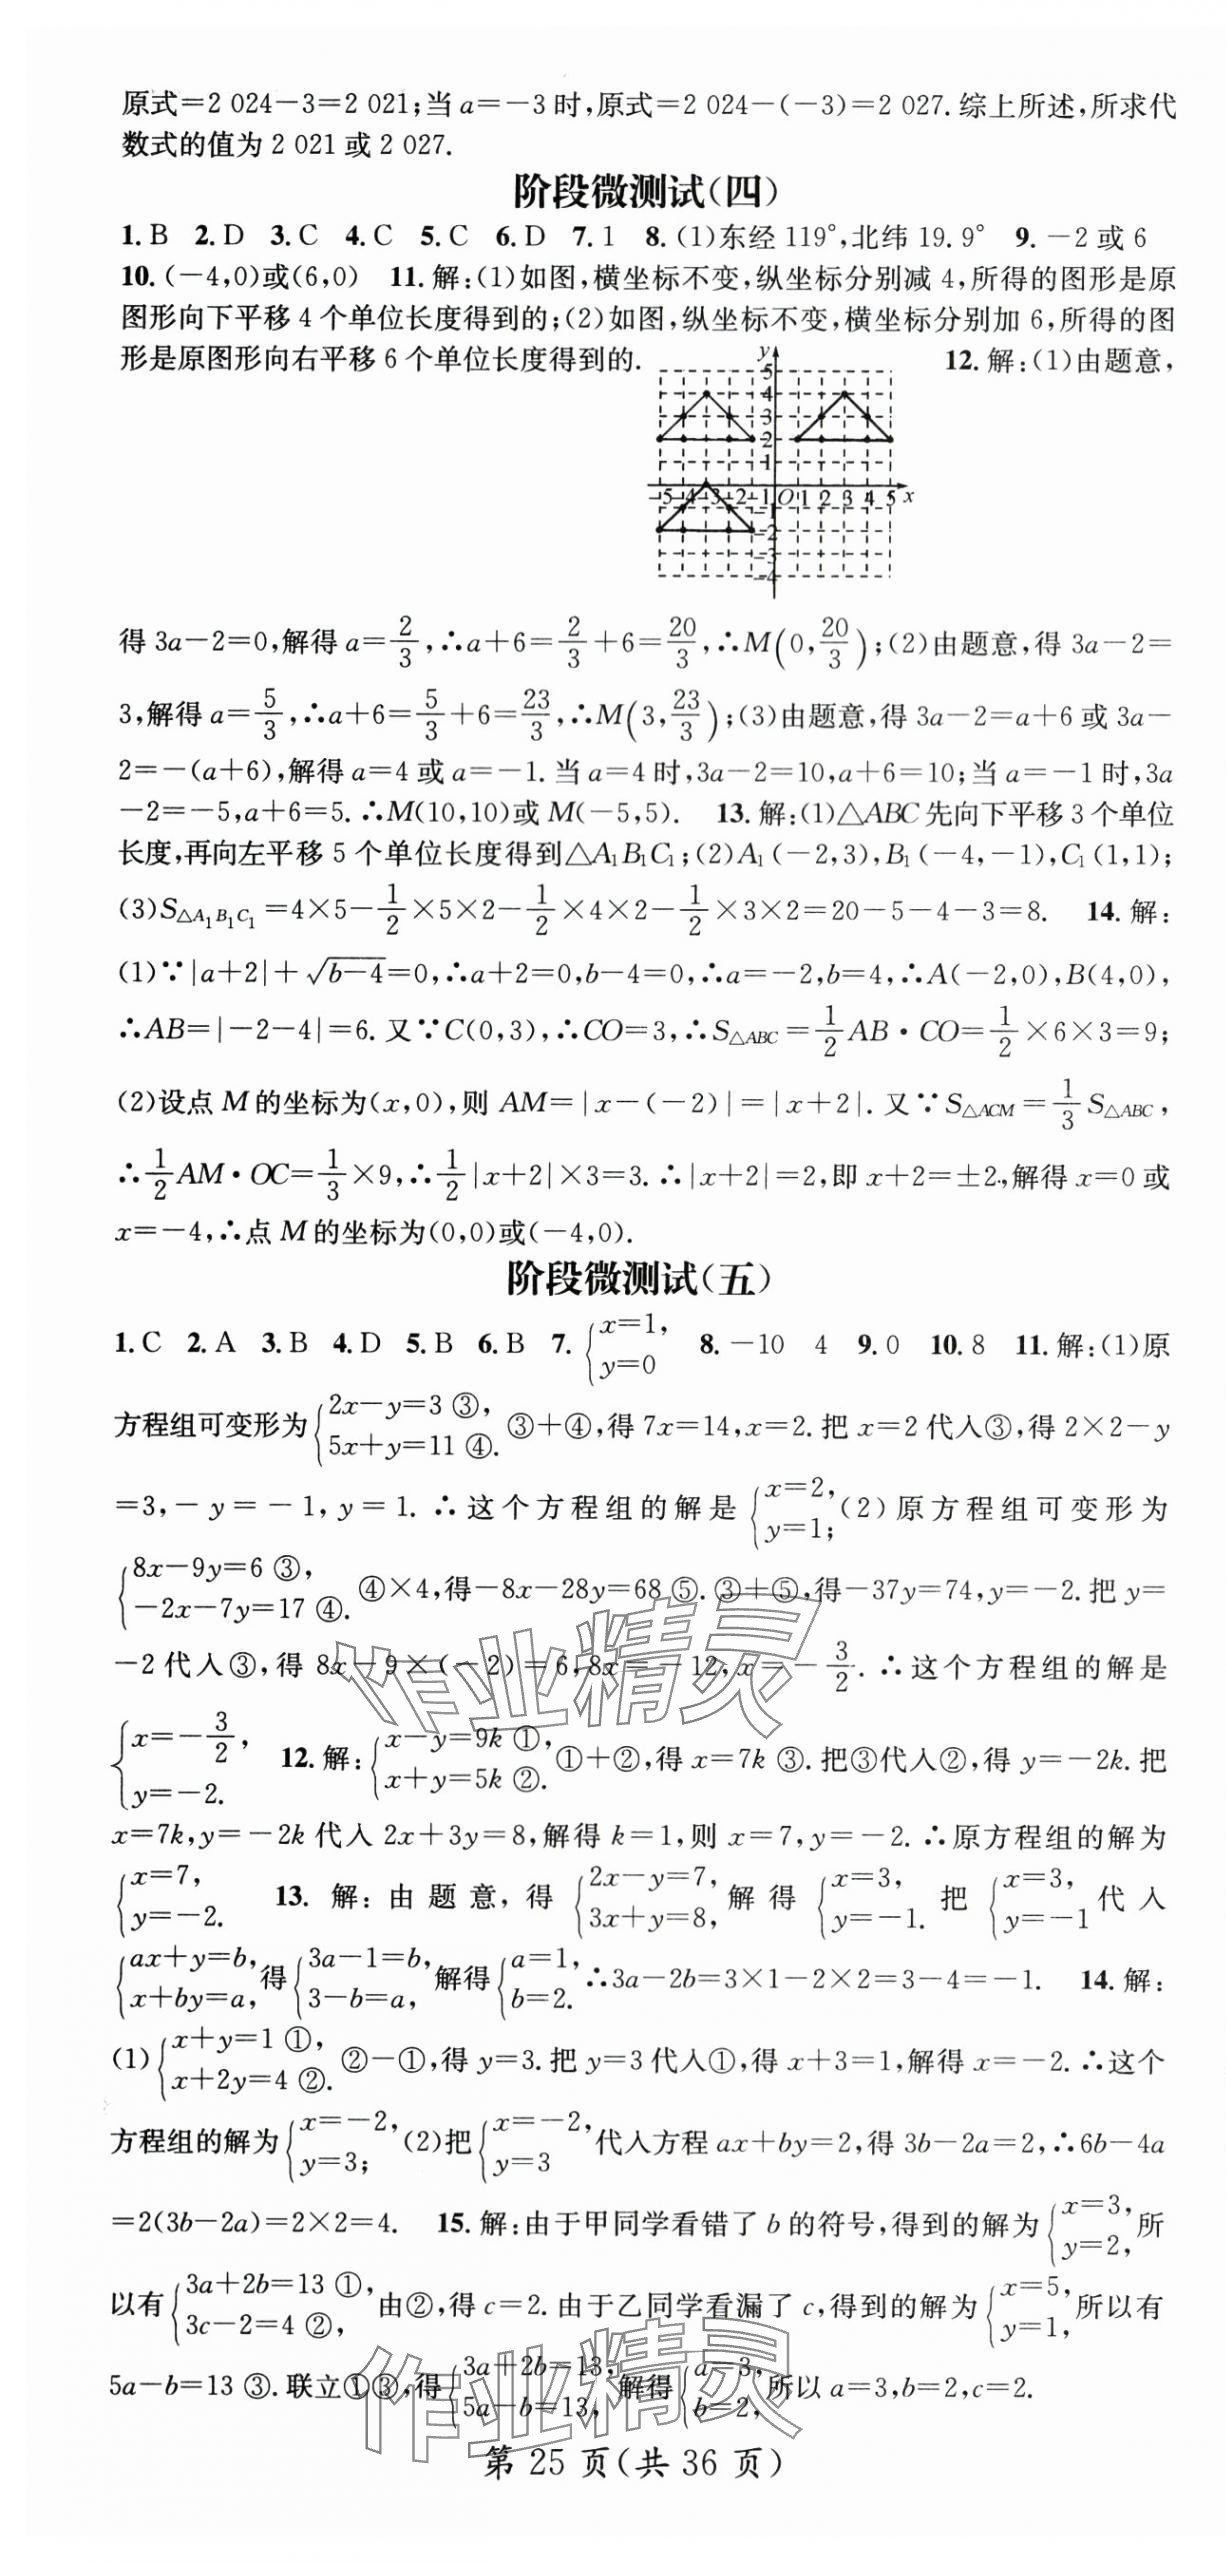 原式=2 024-3=2 021;当 a=-3 时,原式=2 024-(-3)=2 027.综上所述,所求代
数式的值为 2 021 或 2 027.
阶段微测试(四)
1.B 2.D 3.C 4.C 5.C 6.D 7.1 8.(1)东经 119°,北纬 19.9° 9.-2 或 6
10.(-4,0)或(6,0) 11.解:(1)如图,横坐标不变,纵坐标分别减 4,所得的图形是原
图形向下平移 4 个单位长度得到的;(2)如图,纵坐标不变,横坐标分别加 6,所得的图
形是原图形向右平移 6 个单位长度得到的. 12.解:(1)由题意,
y
5
4
3
2
1
-5 -4 -3 -2 -1 O 1 2 3 4 5 x
-1
-2
-3
-4
得 3a-2=0,解得 a=2/3,∴a+6=2/3+6=20/3,∴M(0,20/3);(2)由题意,得 3a-2=
3,解得 a=5/3,∴a+6=5/3+6=23/3,∴M(3,23/3);(3)由题意,得 3a-2=a+6 或 3a-
2=-(a+6),解得 a=4 或 a=-1.当 a=4 时,3a-2=10,a+6=10;当 a=-1 时,3a
-2=-5,a+6=5.∴M(10,10)或 M(-5,5). 13.解:(1)△ABC 先向下平移 3 个单位
长度,再向左平移 5 个单位长度得到△A₁B₁C₁;(2)A₁(-2,3),B₁(-4,-1),C₁(1,1);
(3)S△A₁B₁C₁=4×5-1/2×5×2-1/2×4×2-1/2×3×2=20-5-4-3=8. 14.解:
(1)∵|a+2|+√(b-4)=0,∴a+2=0,b-4=0,∴a=-2,b=4,∴A(-2,0),B(4,0),
∴AB=|-2-4|=6.又∵C(0,3),∴CO=3,∴S△ABC=1/2 AB·CO=1/2×6×3=9;
(2)设点 M 的坐标为(x,0),则 AM=|x-(-2)|=|x+2|.又∵S△ACM=1/3 S△ABC,
∴1/2 AM·OC=1/3×9,∴1/2|x+2|×3=3.∴|x+2|=2,即 x+2=±2,解得 x=0 或
x=-4,∴点 M 的坐标为(0,0)或(-4,0).
阶段微测试(五)
1.C 2.A 3.B 4.D 5.B 6.B 7.{x=1, y=0 8.-10 4 9.0 10.8 11.解:(1)原
方程组可变形为{2x-y=3 ③, 5x+y=11 ④. ③+④,得 7x=14,x=2.把 x=2 代入③,得 2×2-y
=3,-y=-1,y=1.∴这个方程组的解是{x=2, y=1; (2)原方程组可变形为
{8x-9y=6 ③, -2x-7y=17 ④. ④×4,得-8x-28y=68 ⑤.③+⑤,得-37y=74,y=-2.把 y=
-2 代入③,得 8x-9×(-2)=6,8x=-12,x=-3/2.∴这个方程组的解是
{x=-3/2, y=-2. 12.解:{x-y=9k ①, x+y=5k ②. ①+②,得 x=7k ③.把③代入②,得 y=-2k.把
x=7k,y=-2k 代入 2x+3y=8,解得 k=1,则 x=7,y=-2.∴原方程组的解为
{x=7, y=-2. 13.解:由题意,得{2x-y=7, 3x+y=8, 解得{x=3, y=-1. 把{x=3, y=-1 代入
{ax+y=b, x+by=a, 得{3a-1=b, 3-b=a, 解得{a=1, b=2. ∴3a-2b=3×1-2×2=3-4=-1. 14.解:
(1){x+y=1 ①, x+2y=4 ②. ②-①,得 y=3.把 y=3 代入①,得 x+3=1,解得 x=-2.∴这个
方程组的解为{x=-2, y=3; (2)把{x=-2, y=3 代入方程 ax+by=2,得 3b-2a=2,∴6b-4a
=2(3b-2a)=2×2=4. 15.解:由于甲同学看错了 b 的符号,得到的解为{x=3, y=2, 所
以有{3a+2b=13 ①, 3c-2=4 ②, 由②,得 c=2.由于乙同学看漏了 c,得到的解为{x=5, y=1, 所以有
5a-b=13 ③.联立①③,得{3a+2b=13, 5a-b=13, 解得{a=3, b=2, 所以 a=3,b=2,c=2.
作业精灵
作业精灵
第 25 页(共 36 页)